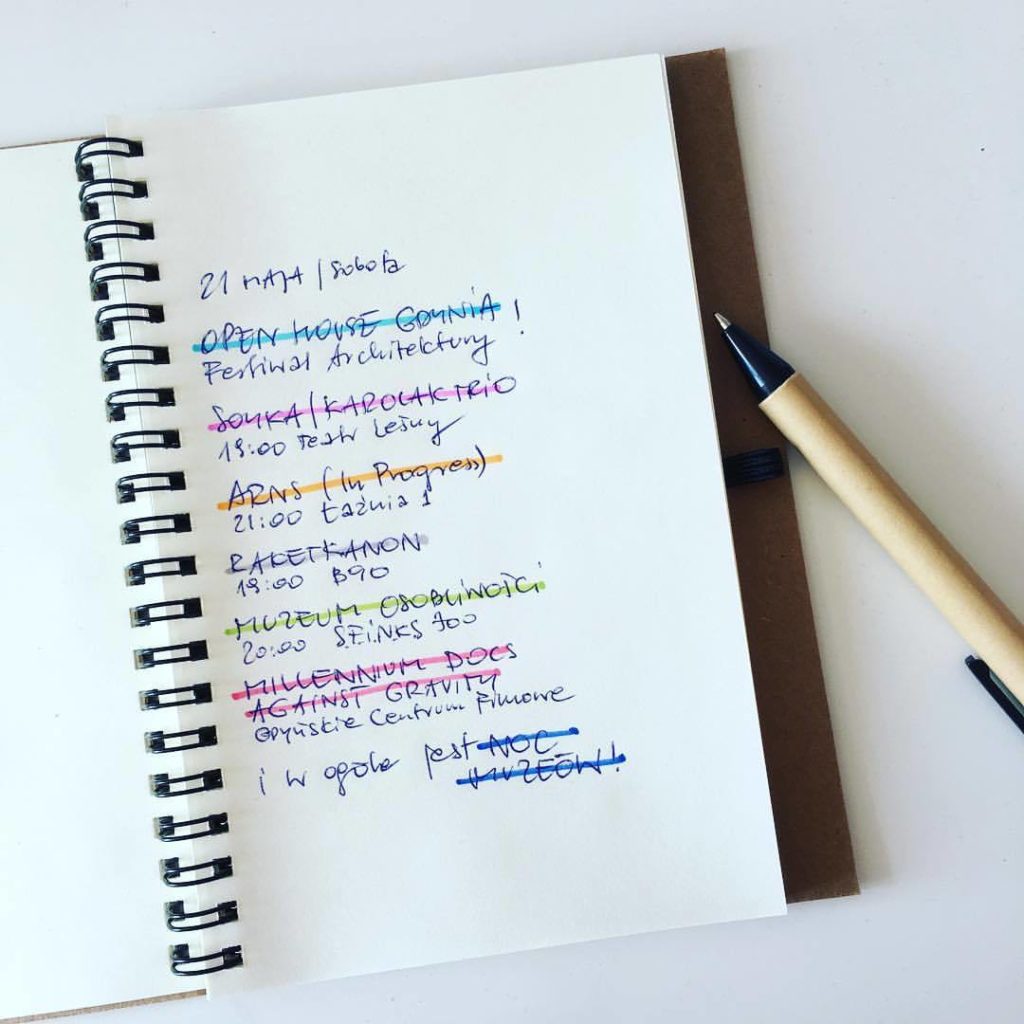 21 MAJA / Sobota
OPEN HOUSE GDYNIA !
Festiwal Architektury
SOYKA/KAROLAK TRIO
19:00 Teatr Leśny
ARNS (In Progress)
21:00 Łaźnia 1
RAKETKANON
19:00 B90
MUZEUM OSOBLIWOŚCI
20:00 SFINKS 700
MILLENNIUM DOCS
AGAINST GRAVITY
Gdyńskie Centrum Filmowe
i w ogóle jest NOC
MUZEÓW!